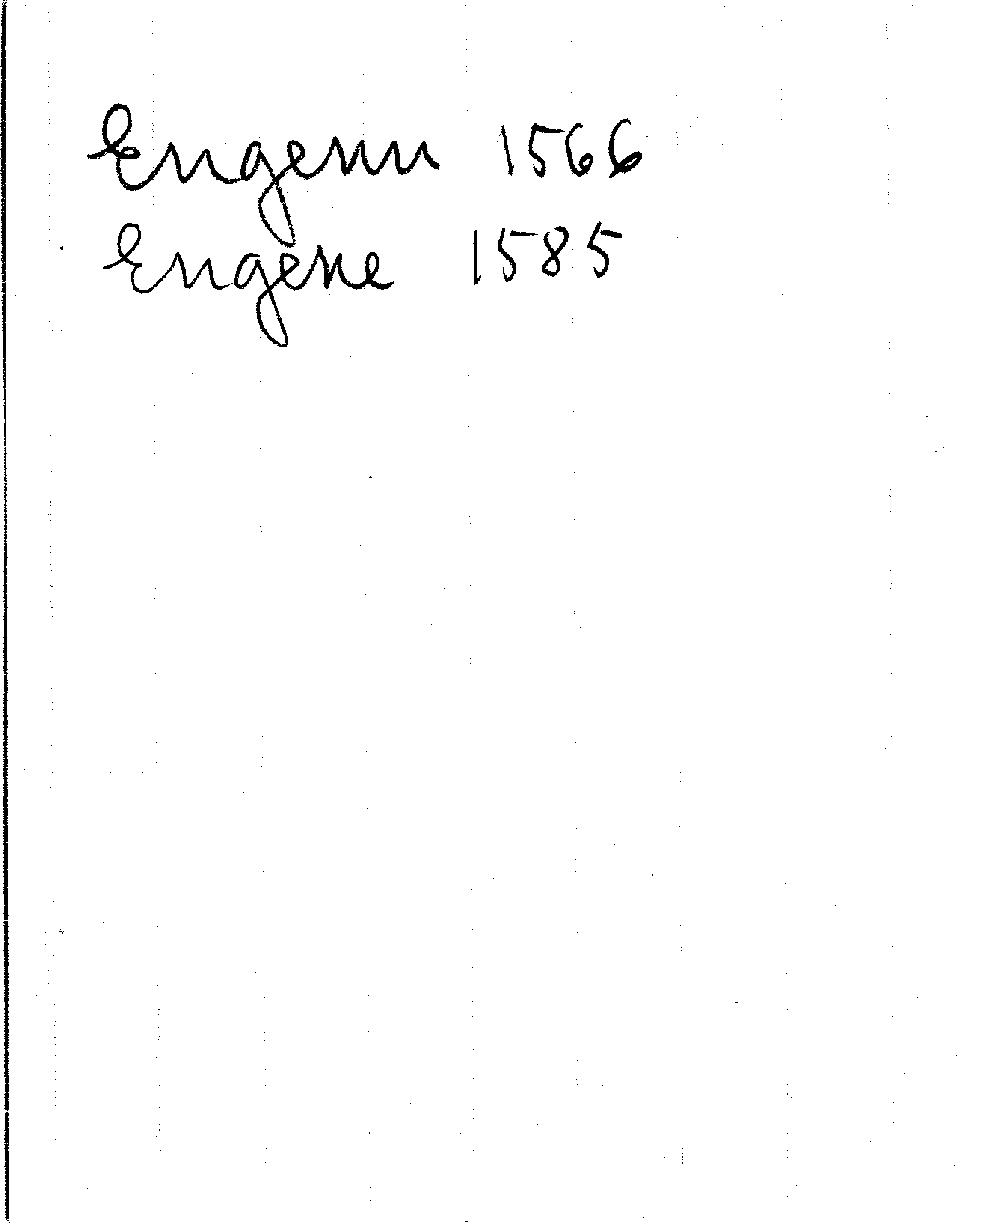 Engenu 1566
Engene 1585